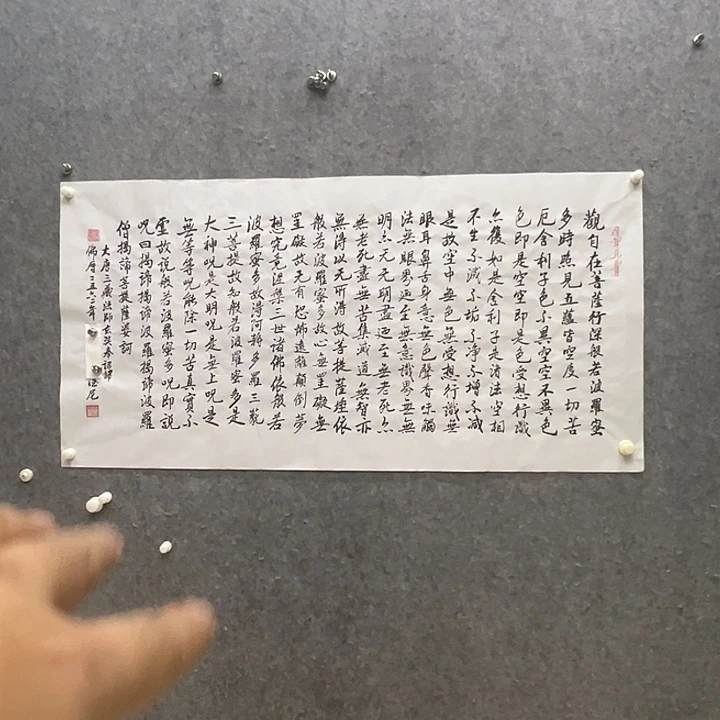 觀自在菩薩行深般若波羅蜜
多時照見五蘊皆空度一切苦
厄舍利子色不異空空不異色
色即是空空即是色受想行識
亦復如是舍利子是諸法空相
不生不滅不垢不淨不增不減
是故空中無色無受想行識無
眼耳鼻舌身意無色聲香味觸
法無眼界迺至無意識界無無
明亦无无明盡迺至無老死亦
無老死盡無苦集滅道無智亦
無得以无所得故菩提薩埵依
般若波羅蜜多故心無罣礙無
罣礙故无有恐怖遠離顛倒夢
想究竟涅槃三世諸佛依般若
波羅蜜多故得阿耨多羅三藐
三菩提故知般若波羅蜜多是
大神呪是大明呪是無上呪是
無等等呪能除一切苦真實不
虛故說般若波羅蜜多呪即說
呪曰揭諦揭諦波羅揭諦波羅
僧揭諦菩提薩婆訶
大唐三藏法師玄奘奉詔譯
佛曆二五六三年